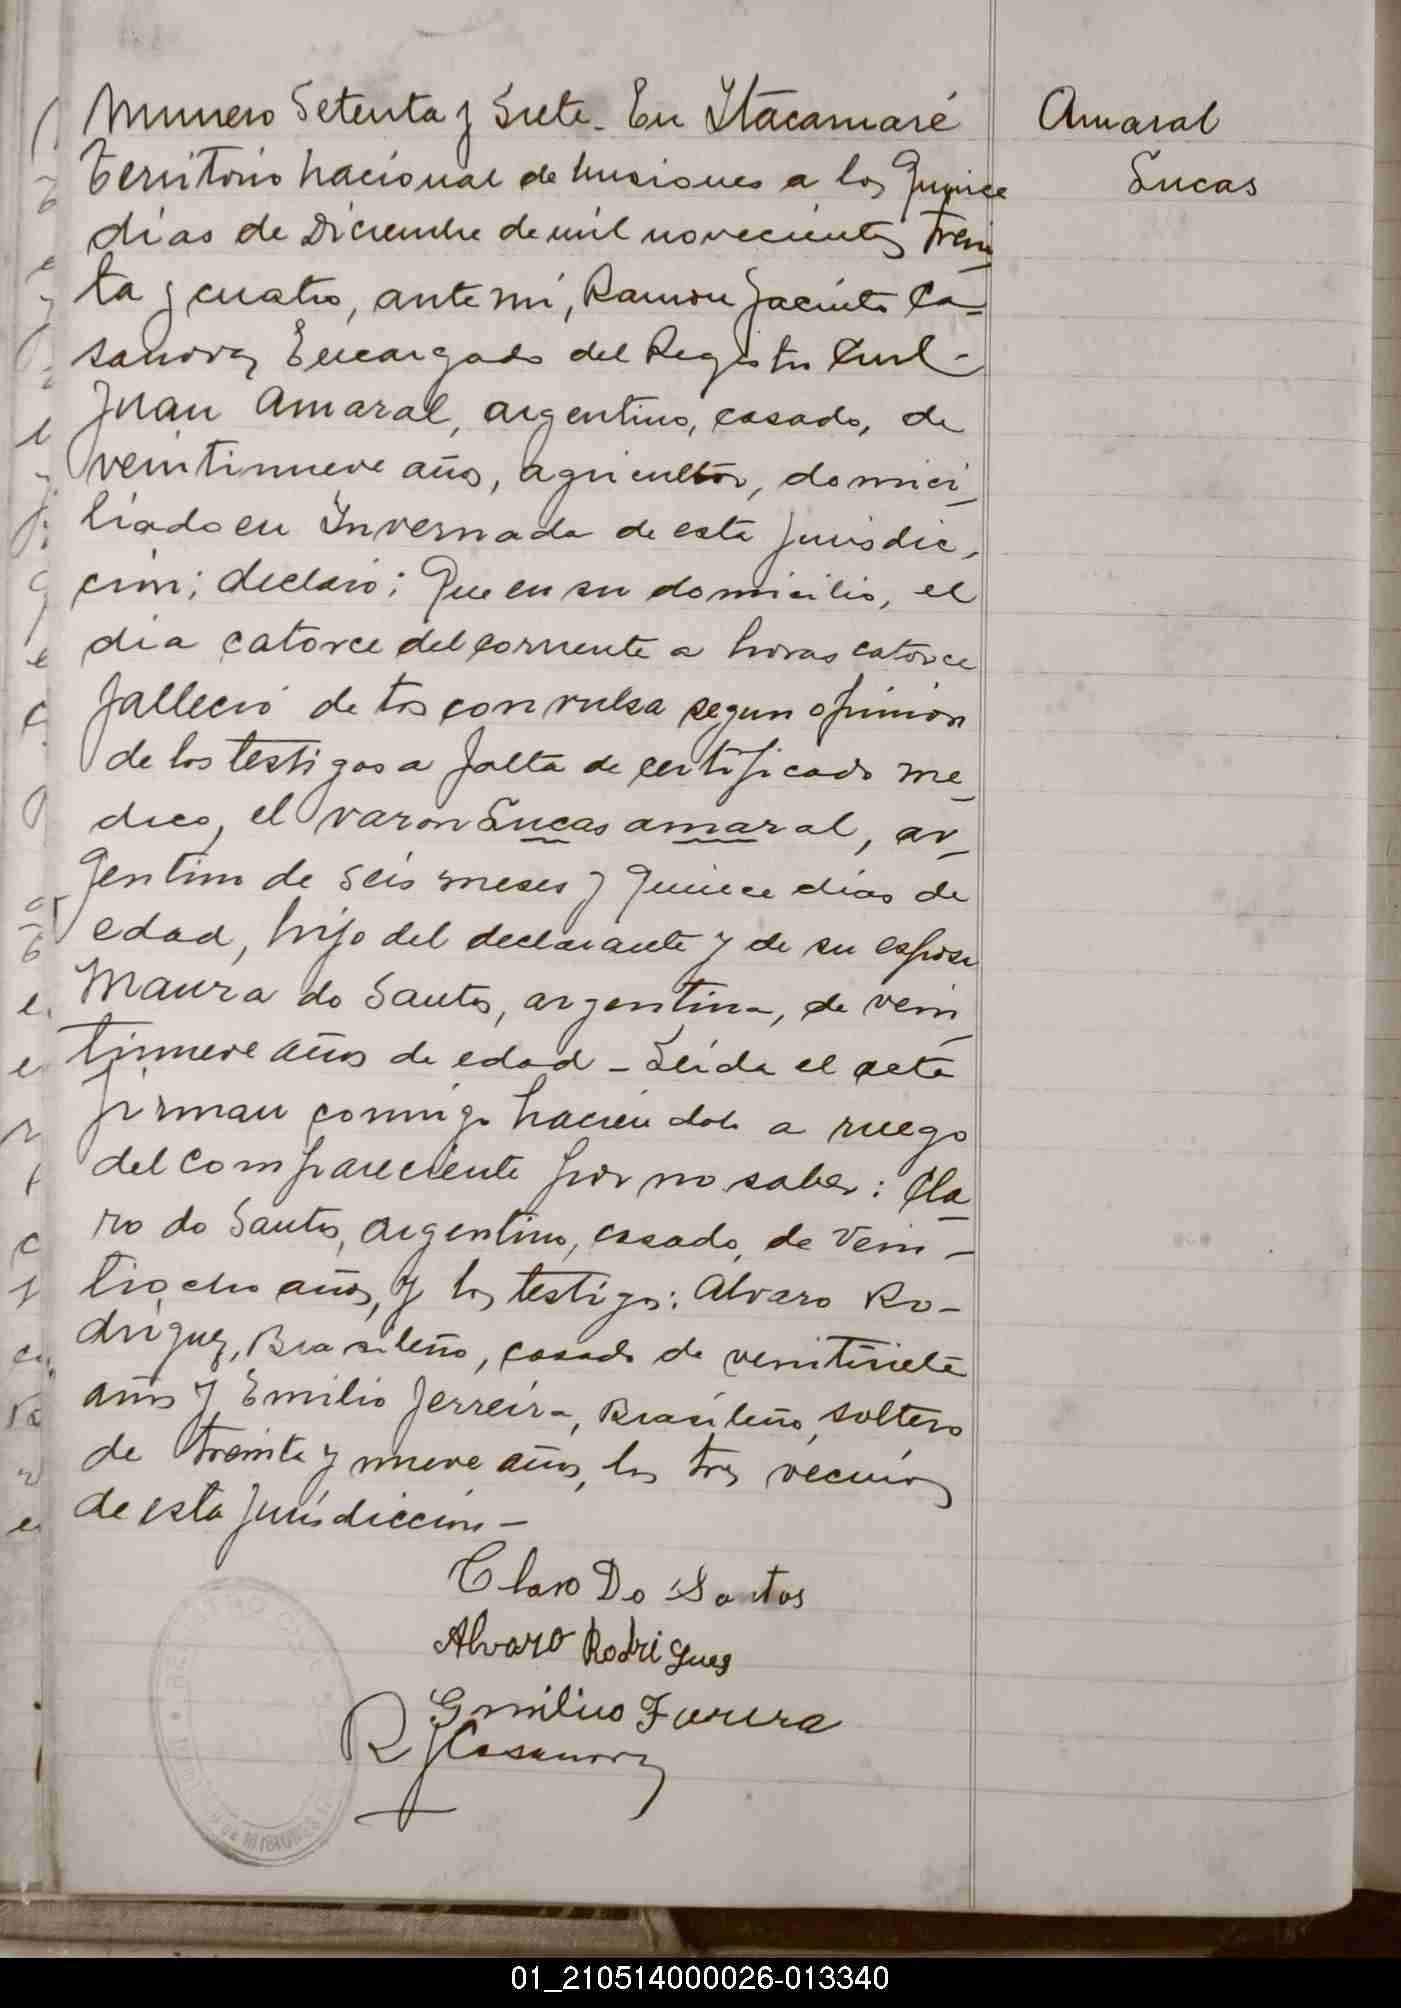 Numero Setenta y Siete. En Itacaruaré
Territorio Nacional de Misiones a los Quince
dias de Diciembre de mil novecientos Trein
ta y cuatro, ante mi, Ramon Jacinto Ca-
sanova, Encargado del Registro Civil -
Juan Amaral, argentino, casado, de
veintinueve años, agricultor, domici
liado en Invernada de esta Jurisdic,
ción; declaró; Que en su domicilio, el
dia catorce del corriente a horas catorce
falleció de tos convulsa segun opinion
de los testigos a falta de certificado me
dico, el varon Lucas Amaral, ar
gentino de seis meses y quince dias de
edad, hijo del declarante y de su esposa
Maura do Santos, argentina, de vein
tinueve años de edad - Leida el acta
firman conmigo haciendolo a ruego
del compareciente por no saber: Cla
ro do Santos, argentino, casado, de vein-
tiocho años, y los testigos: Alvaro Ro-
driguez, Brasileño, casado de veintisiete
años y Emilio Ferreira, Brasileño, soltero
de treinta y nueve años, los tres vecinos
de esta Jurisdiccion -
Claro Do Santos
Alvaro Rodrigues
Emilio Fareira
R J Casanova
Amaral
Lucas
01_210514000026-013340